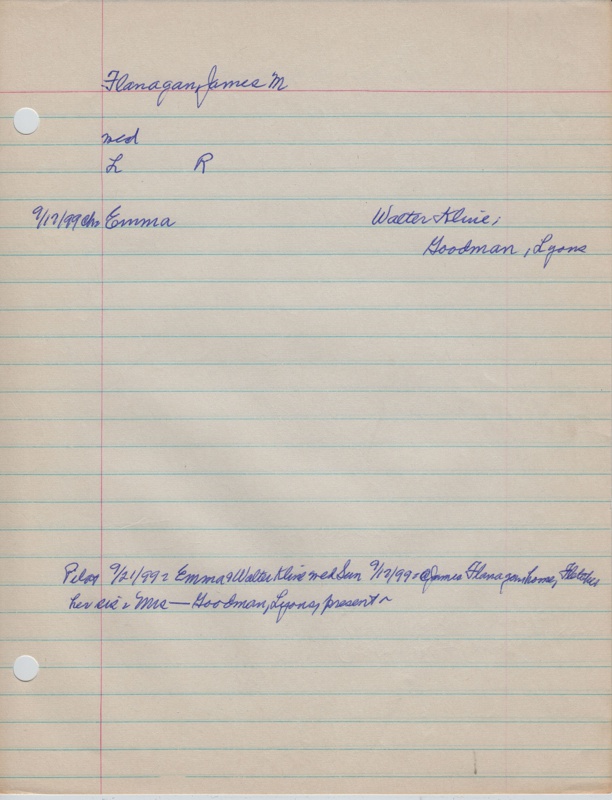 Flanagan, James M
med
L R
9/17/99 Emma Walter Kline,
Goodman, Lyons
9/21/99: Emma & Walter Kline med Sun 9/17/99: @ James Flanagan home, Fletcher
her sis, Mrs — Goodman, Lyons, present ~